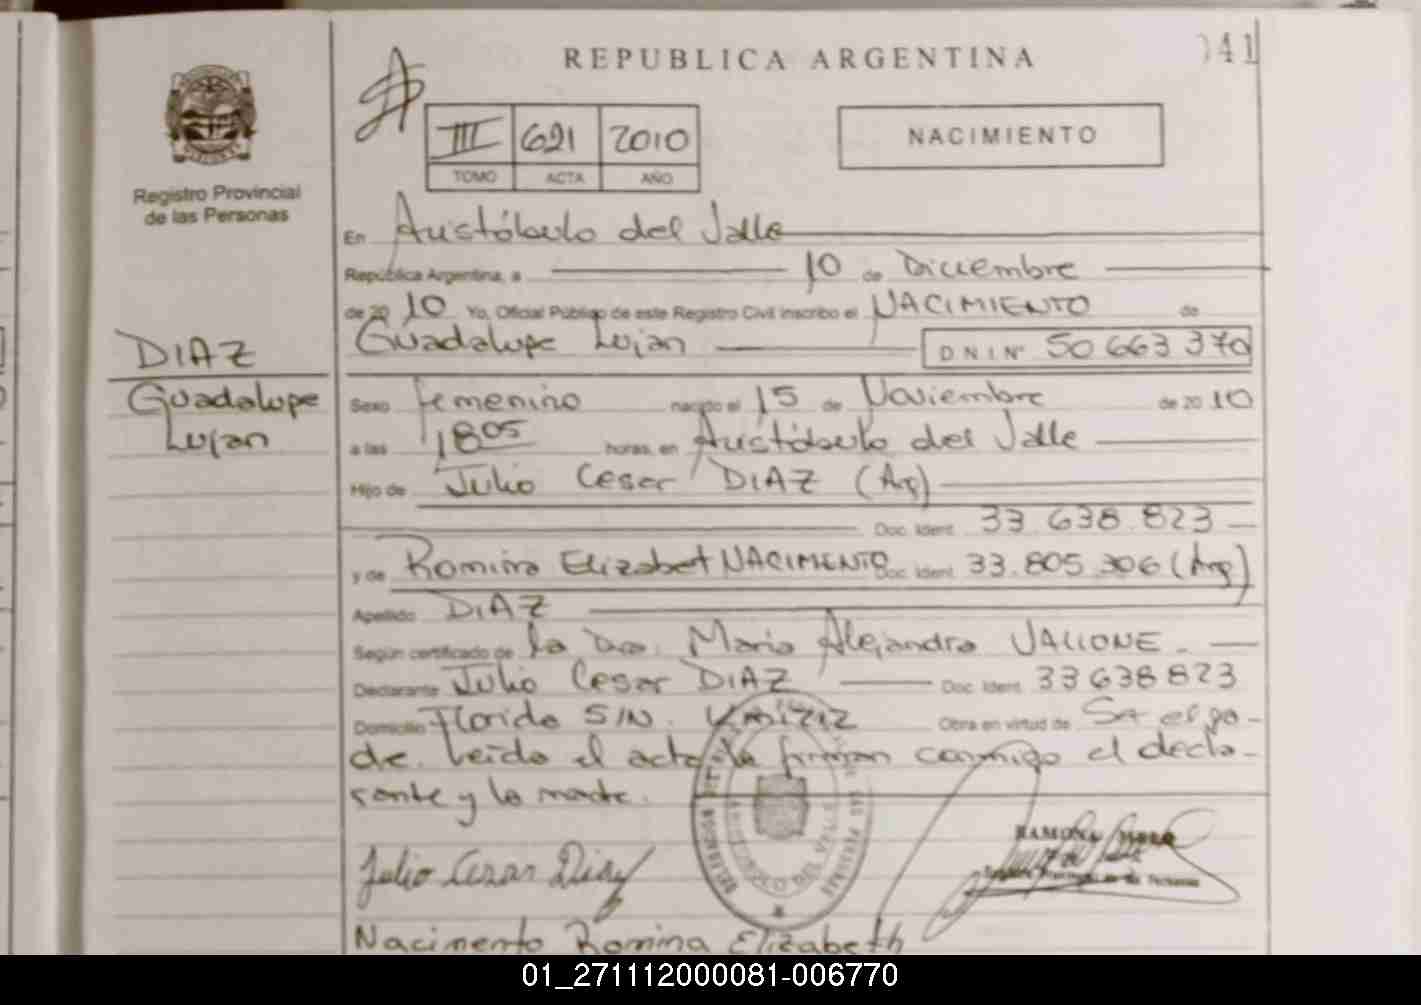 REPUBLICA ARGENTINA
041
III 621 2010
TOMO ACTA AÑO
NACIMIENTO
Registro Provincial
de las Personas
En Aristóbulo del Valle
República Argentina, a 10 de Diciembre
de 20 10 Yo, Oficial Público de este Registro Civil inscribo el NACIMIENTO de
Guadalupe Lujan DNI Nº 50 663 370
DIAZ
Guadalupe
Lujan
Sexo femenino nacido el 15 de Noviembre de 20 10
a las 1805 horas, en Aristóbulo del Valle
Hijo de Julio Cesar DIAZ (Arg)
Doc. Ident. 33.638.823
y de Romina Elizabet NACIMENTO Doc. Ident. 33.805.306 (Arg)
Apellido DIAZ
Según certificado de la Dra. Maria Alejandra
Declarante Julio Cesar DIAZ Doc. Ident. 33638823
Domicilio Florida S/N. Obra en virtud de
de. Leido el acta la firman conmigo el decla-
rante y la madre.
Julio Cesar Diaz
RAMONA
Nacimento Romina Elizabeth
01_271112000081-006770